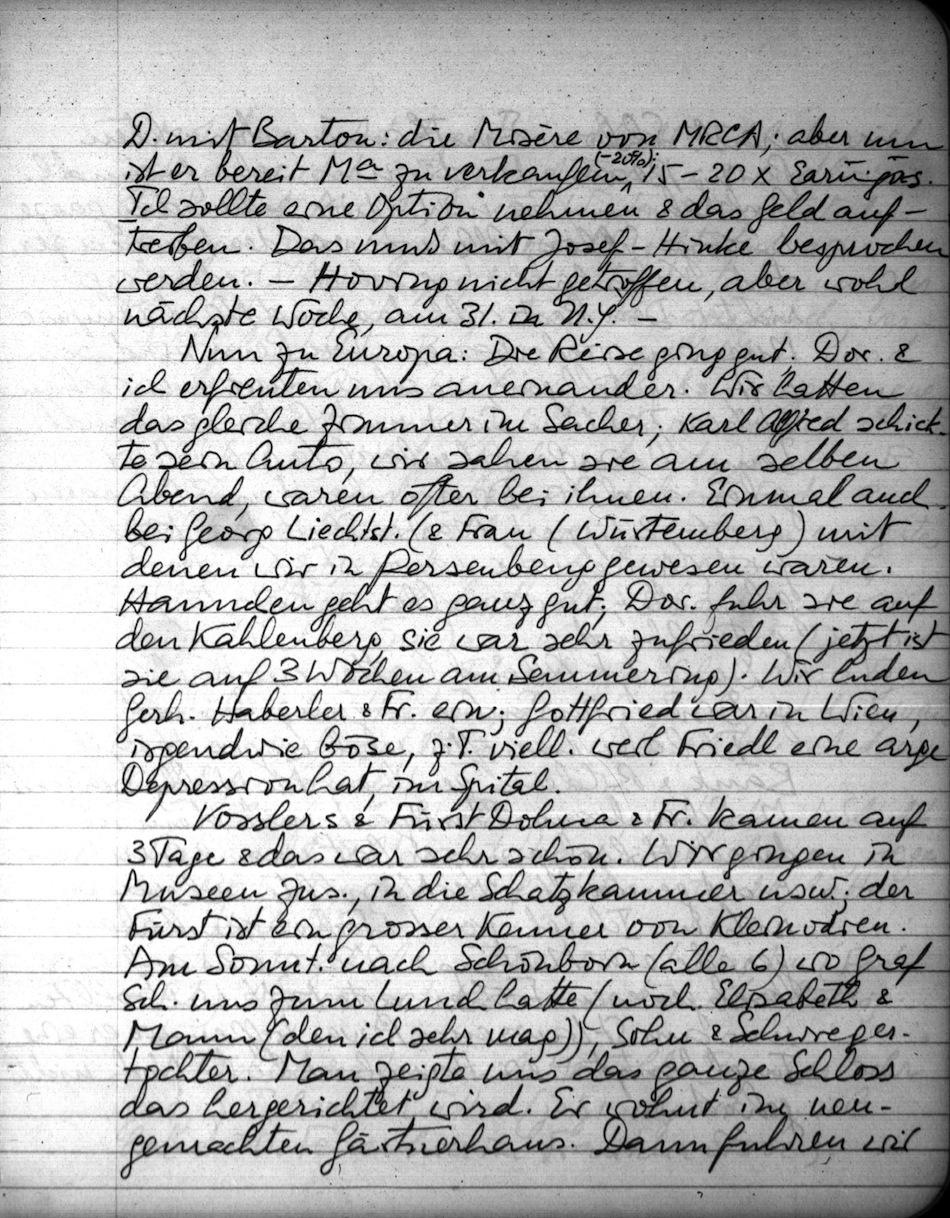 D. mit Barton: die Misère von MRCA; aber nun
ist er bereit Ma zu verkaufen, (-20%); 15-20 x Earnings.
Ich sollte eine Option nehmen & das Geld auf-
treiben. Das muss mit Josef-Hinke besprochen
werden. – Hoving nicht getroffen, aber wohl
nächste Woche, am 31. in N.Y. –
Nun zu Europa: Die Reise ging gut. Dor. &
ich erfreuten uns aneinander. Wir hatten
das gleiche Zimmer im Sacher; Karl Alfred schick-
te sein Auto, wir sahen sie am selben
Abend, waren öfter bei ihnen. Einmal auch
bei Georg Liechtst. (& Frau (Würtemberg) mit
denen wir in Persenbeug gewesen waren.
Hannden geht es ganz gut; Dor. fuhr sie auf
den Kahlenberg, sie war sehr zufrieden (jetzt ist
sie auf 3 Wochen am Semmering). Wir luden
Gerh. Haberler & Fr. ein; Gottfried war in Wien,
irgendwie böse, z.T. viell. weil Friedl eine arge
Depression hat, im Spital.
Vosslers & Fürst Dohna & Fr. kamen auf
3 Tage & das war sehr schön. Wir gingen in
Museen zus., in die Schatzkammer usw.; der
Fürst ist ein grosser Kenner von Kleinodien.
Am Sonnt. nach Schönborn (alle 6) wo Graf
Sch. uns zum Lunch hatte (noch Elisabeth &
Mann (den ich sehr mag)), Sohn & Schwieger-
tochter. Man zeigte uns das ganze Schloss
das hergerichtet wird. Er wohnt im neu-
gemachten Gärtnerhaus. Dann fuhren wir